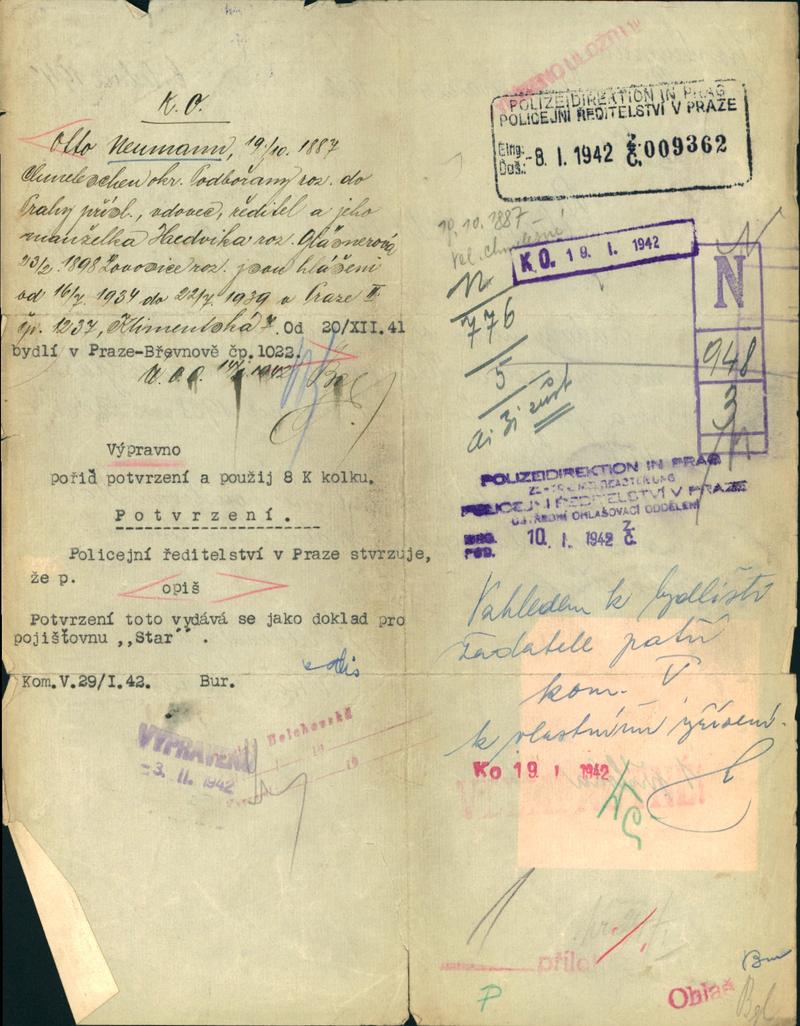 K. O.
Otto Neumann, 19./10. 1887
okr. Podbořany roz. do
Prahy přísl., vdovec, ředitel a jeho
manželka Hedvika roz. Glasnerová
23/2. 1898 Lovosice roz. jsou hlášeni
od 16/7 1934 do 22/7. 1939 v Praze II
čp. 1237, Klimentská 7. Od 20/XII.41
bydlí v Praze-Břevnově čp.1022.
Výpravno
pořiď potvrzení a použij 8 K kolku.
Potvrzení.
Policejní ředitelství v Praze stvrzuje,
že p.
opiš
Potvrzení toto vydává se jako doklad pro
pojišťovnu ,,Star".
Kom.V.29/I.42. Bur.
VYPRAVENO
-3. II. 1942
POLIZEIDIREKTION IN PRAG
POLICEJNÍ ŘEDITELSTVÍ V PRAZE
Eing.:
Doš.: -8. I. 1942 Z. Č. 009362
19. 10. 1887
K O. 19. I. 1942
N
N
776
5
948
3
POLIZEIDIREKTION IN PRAG
POLICEJNÍ ŘEDITELSTVÍ V PRAZE
ÚSTŘEDNÍ OHLAŠOVACÍ ODDĚLENÍ
10. I. 1942 Z. Č.
Vzhledem k bydlišti
žadatele patří
kom. V
k vlastnímu vyřízení.
Ko 19. I 1942
příloh
Ohlaš